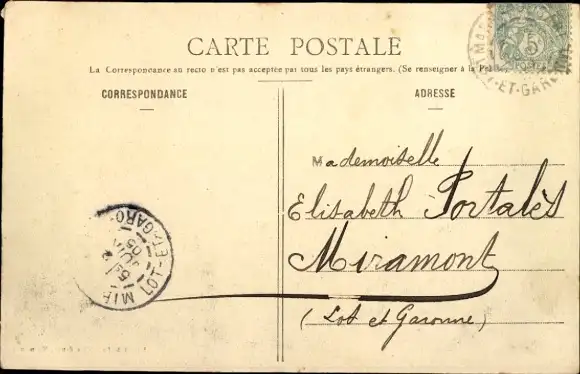 CARTE POSTALE
La Correspondance au recto n'est pas acceptée par tous les pays étrangers. (Se renseigner à la
CORRESPONDANCE
ADRESSE
Mademoiselle
Elisabeth Portalès
Miramont
(Lot et Garonne)
5
MA
T-ET-GAR
MIR
LOT-ET-GARO
05